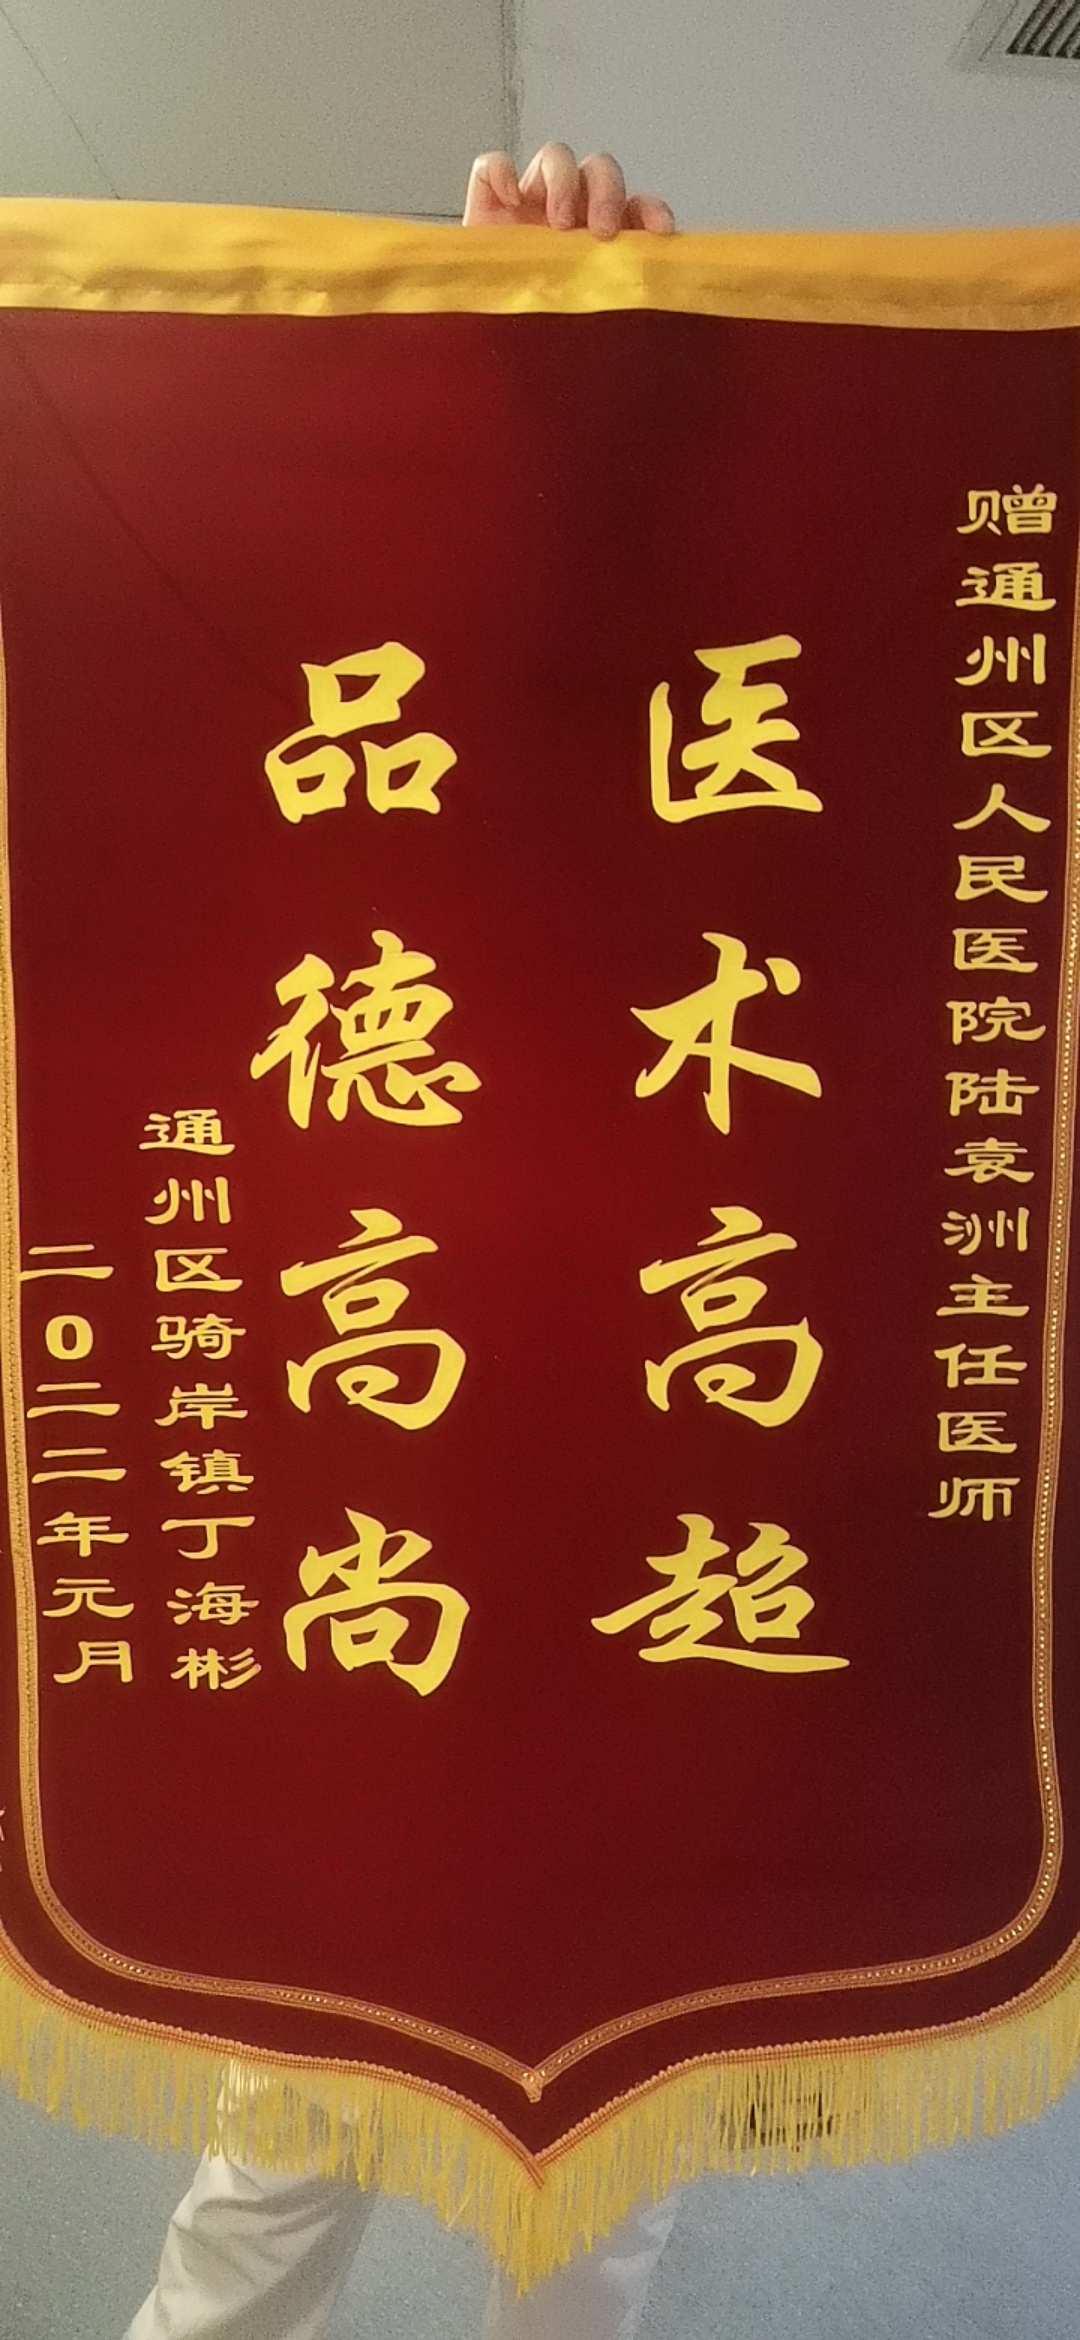 赠通州区人民医院陆袁洲主任医师
医术高超
品德高尚
通州区骑岸镇丁海彬
二0二二年元月